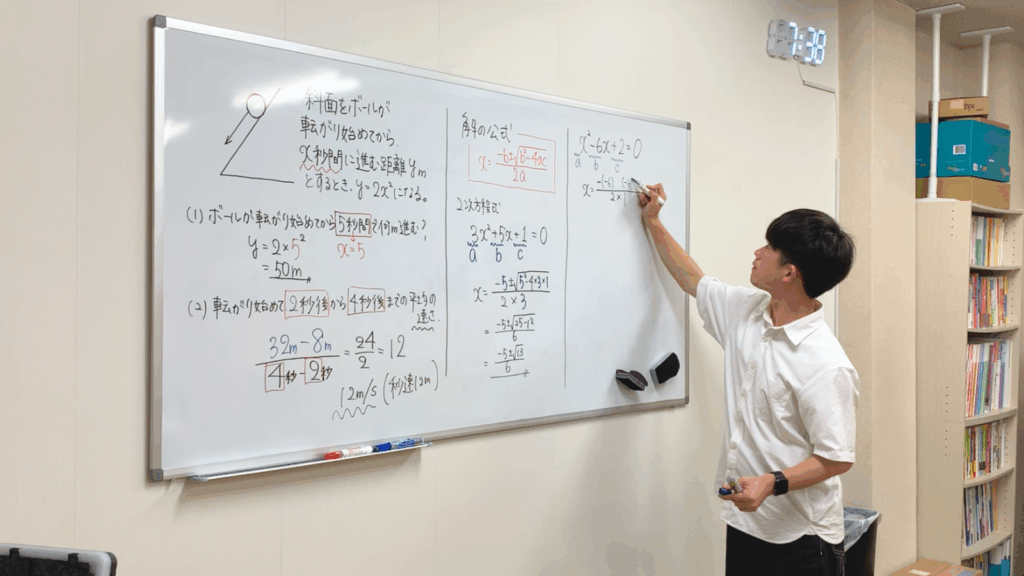 斜面をボールが
転がり始めてから
x秒間に進む距離 y m
とするとき、y=2x²になる。
(1) ボールが転がり始めてから5秒間で何m進む?
y=2×5²
x=5
=50m
(2) 転がり始めて2秒後から4秒後までの平均の
速さ
32m-8m
4秒-2秒
=24/2=12
12m/s (秒速12m)
解の公式
x=-b±√b²-4ac
2a
2次方程式
3x²+5x+1=0
a b c
x=-5±√5²-4×3×1
2×3
=-5±√25-12
6
=-5±√13
6
x²-6x+2=0
a b c
x=-(-6)
2×1
7:38